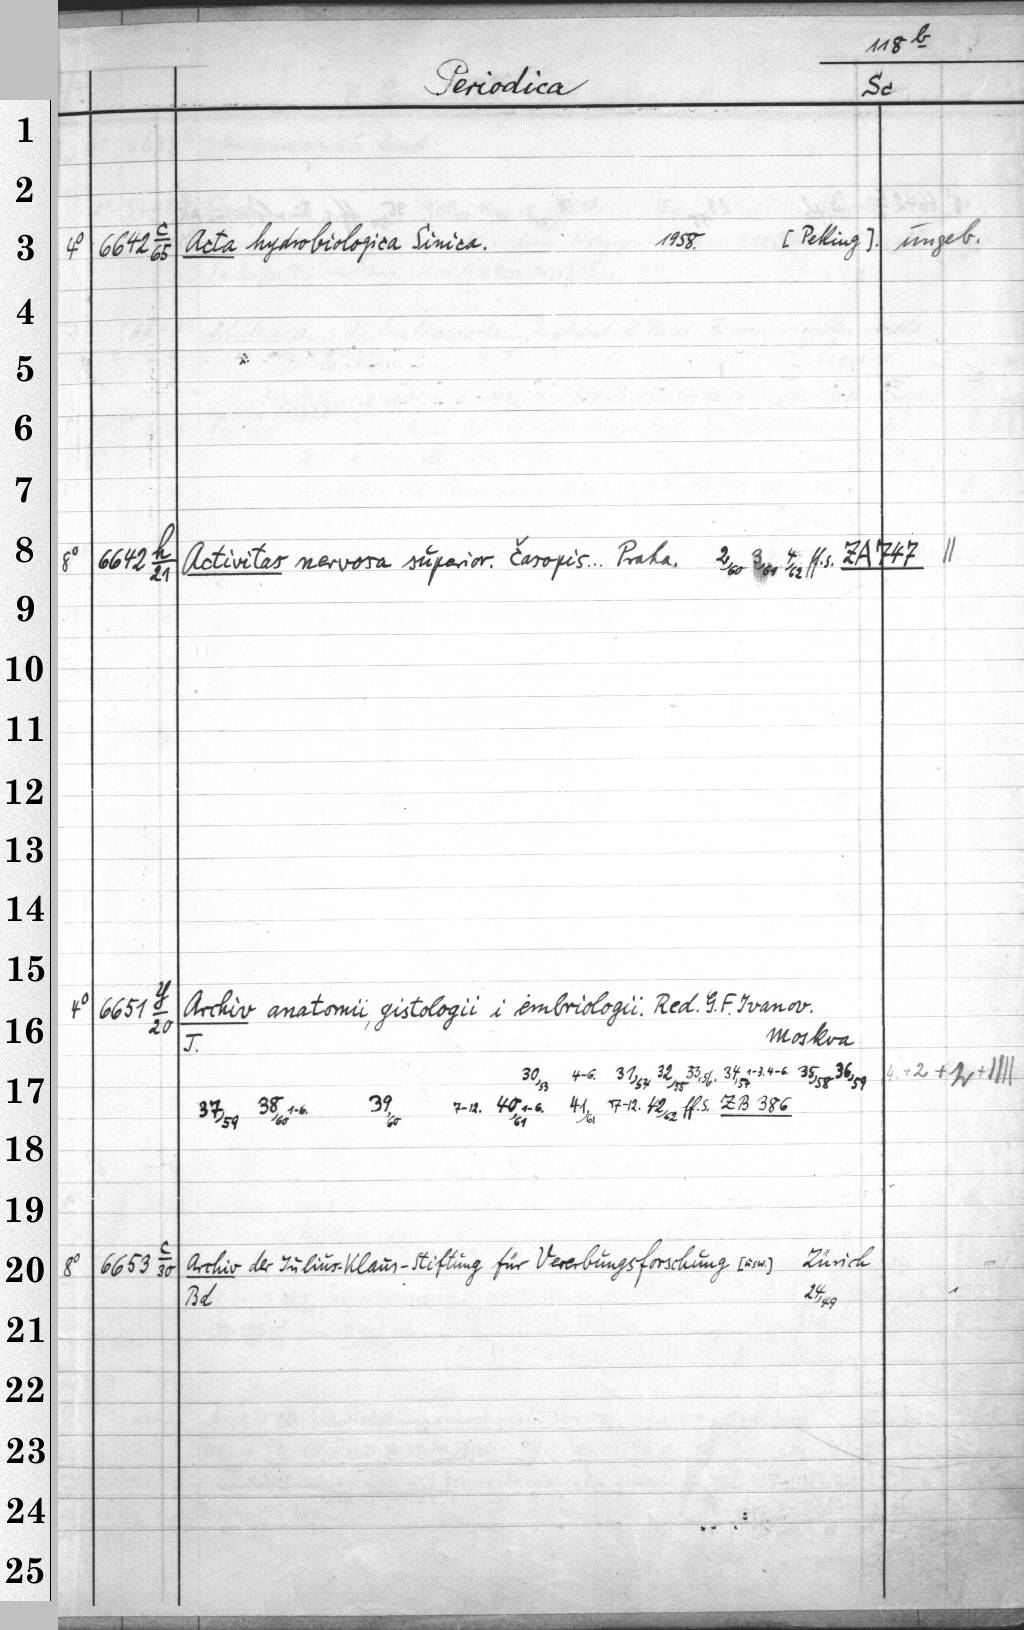 118 b
Periodica Sc
1
2
3 4° 6642 c/65 Acta hydrobiologica Sinica. 1958. [Peking]. ungeb.
4
5
6
7
8 8° 6642 h/21 Activitas nervosa superior. Časopis... Praha. 2/60 3/61 4/62 ff. s. ZA 747 ||
9
10
11
12
13
14
15
4° 6651 y/20 Archiv anatomii, gistologii i embriologii. Red. G. F. Ivanov.
16 T. Moskva
17 30/53 4-6. 31/54 32/55 33/56. 34/57 1-3. 4-6. 35/58 36/59 4. +2 +2 +||||
37/59 38/60 1-6. 39/60 7-12. 40/61 1-6. 41/61 7-12. 42/62 ff. s. ZB 386
18
19
20 8° 6653 c/30 Archiv der Julius-Klaus-Stiftung für Vererbungsforschung [usw.] Zürich
Bd 24/49
21
22
23
24
25